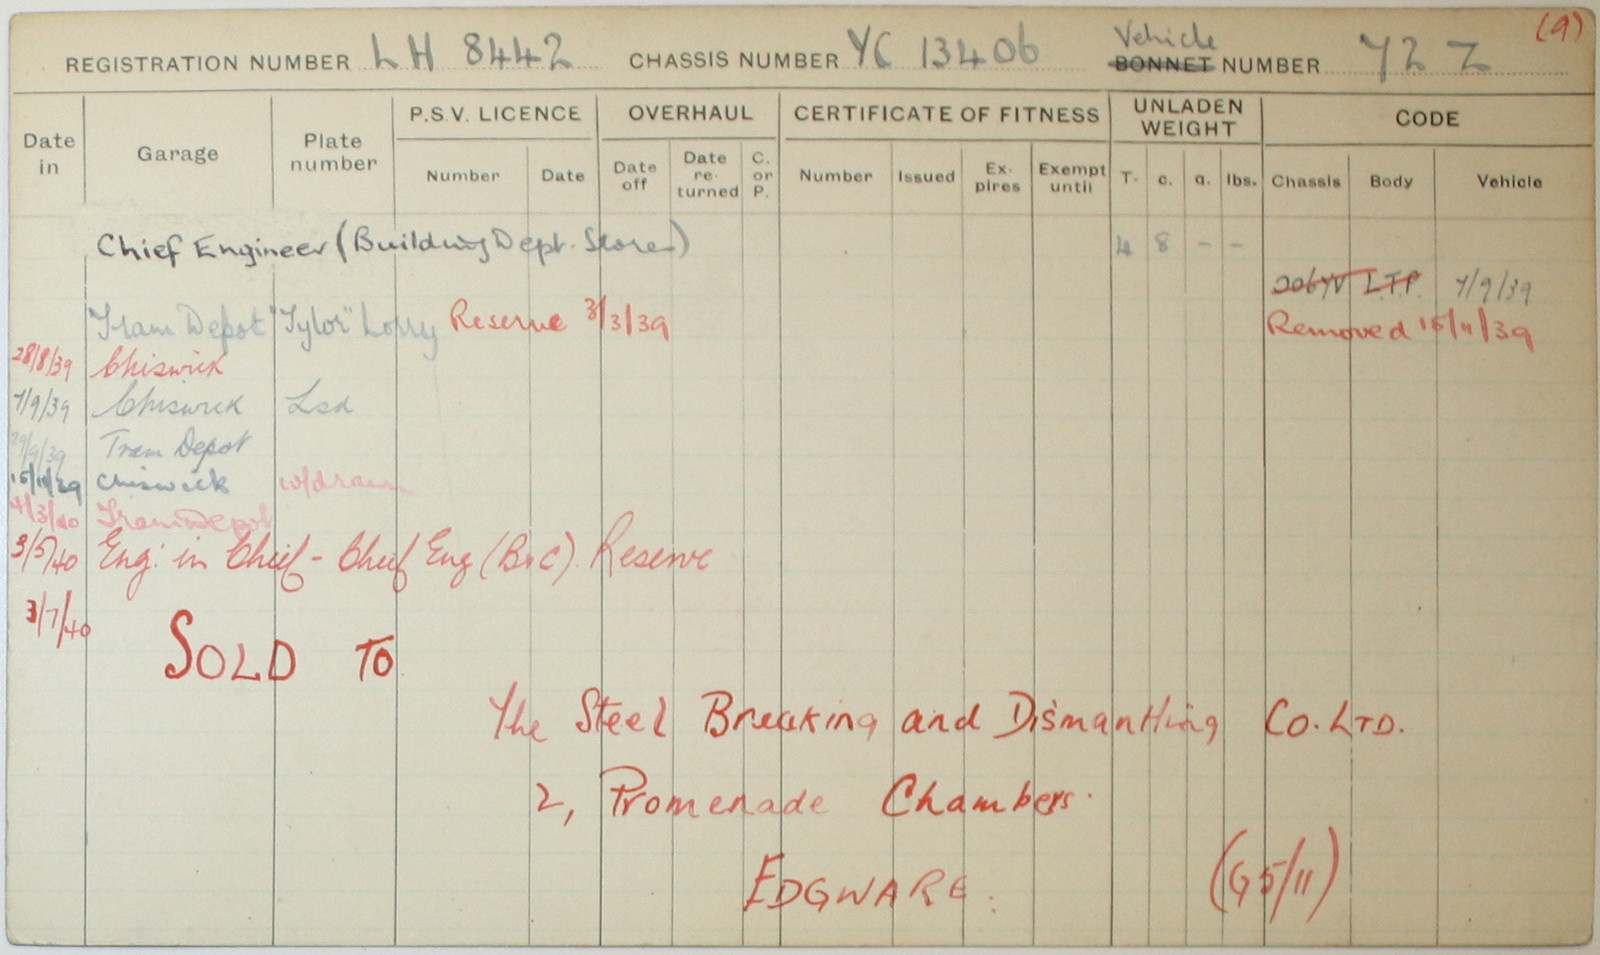 (9)
REGISTRATION NUMBER LH 8442 CHASSIS NUMBER YC 13406 Vehicle BONNET NUMBER 72 Z
Date in Garage Plate number P.S.V. LICENCE OVERHAUL CERTIFICATE OF FITNESS UNLADEN WEIGHT CODE
Number Date Date off Date re-turned C. or P. Number Issued Ex-pires Exempt until T. c. q. lbs. Chassis Body Vehicle
Chief Engineer (Building Dept. Stores) 4 8 - -
LTP. 7/9/39
Tram Depot "Tylor" Lorry Reserve 3/3/39 Removed 15/11/39
28/8/39 Chiswick
7/9/39 Chiswick Lsd
29/9/39 Tram Depot
15/11/39 Chiswick w/drawn
4/3/40 Tram Depot
3/5/40 Eng. in Chief - Chief Eng (B&C). Reserve
3/7/40
SOLD TO
The Steel Breaking and Dismantling Co. LTD.
2, Promenade Chambers.
EDGWARE.
(G5/11)